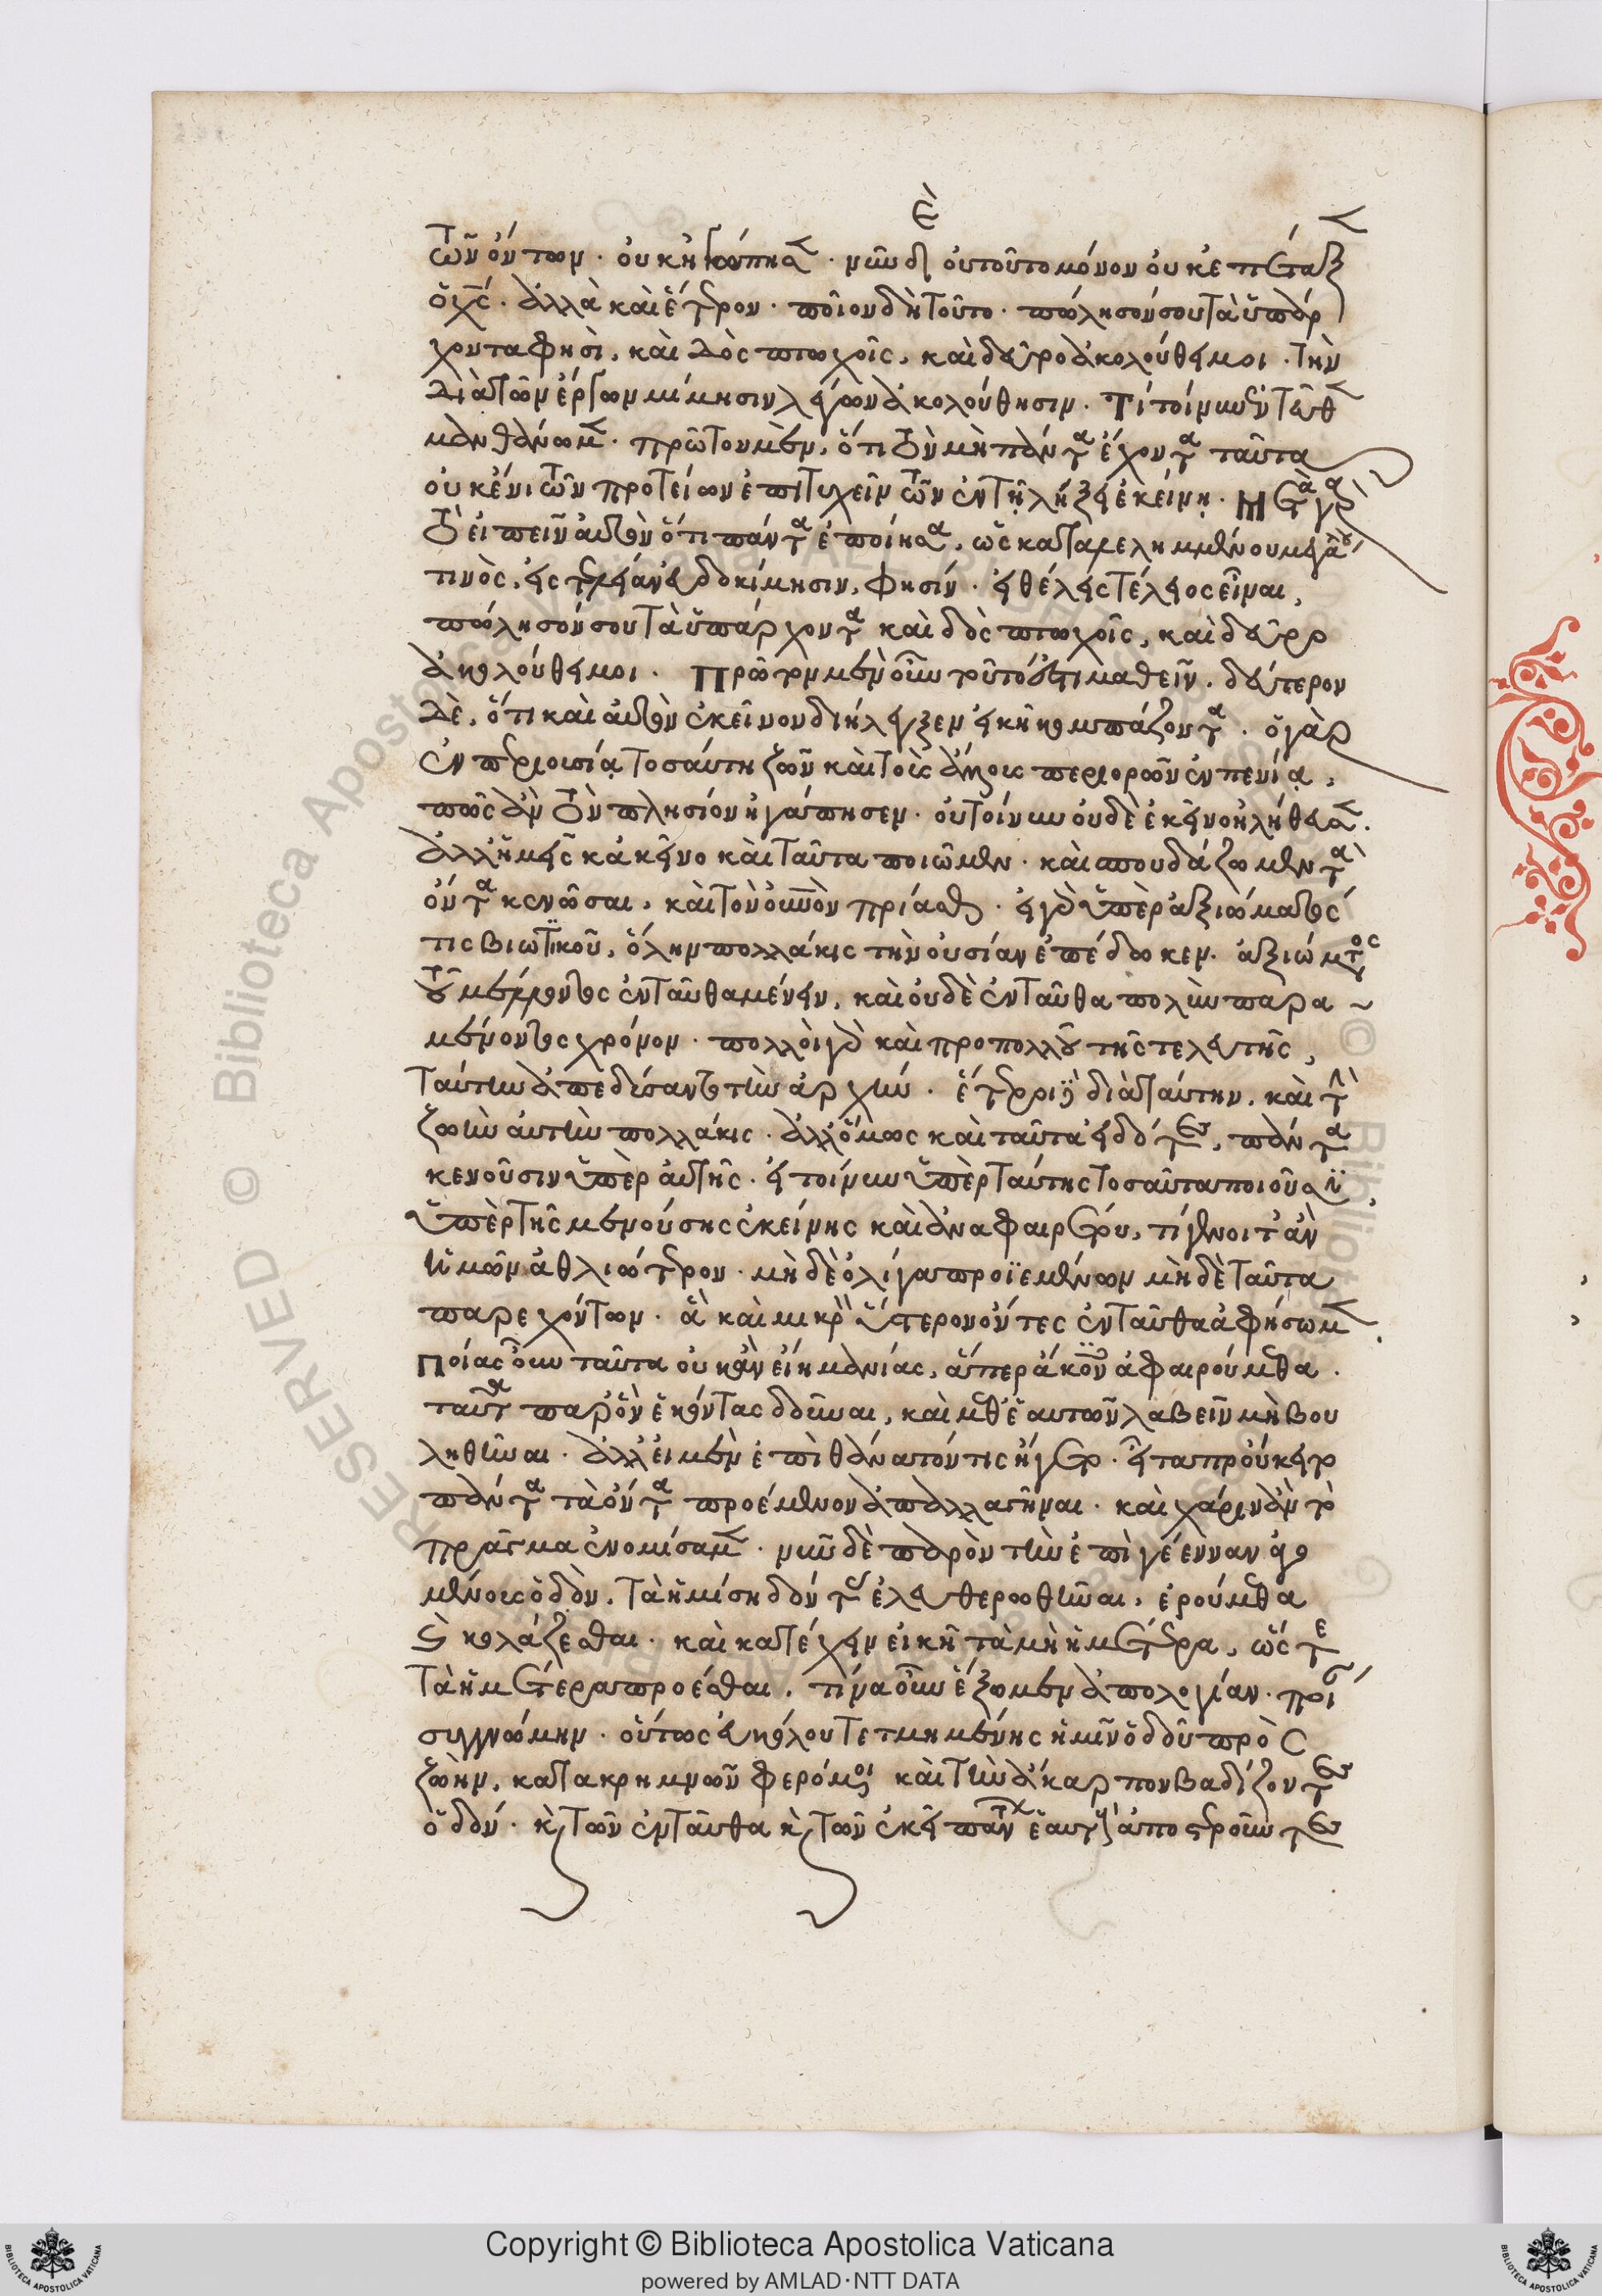 ὲ
τῶν ὄντων · οὐκ ἠγώνιας · νῦν δὲ οὐ τοῦτο μόνον οὐκ ἐπέταξεν
ὁ χς · ἀλλὰ καὶ ἕτερον · ποῖον δὴ τοῦτο · πώλησόν σου τὰ ὑπάρ
χοντα φησὶ, καὶ δὸς πτωχοῖς, καὶ δεῦρο ἀκολούθει μοι · τὴν
διὰ τῶν ἔργων μίμησιν λέγων ἀκολούθησιν · Τί τοίνυν ἐντεῦθεν
μανθάνομεν · πρῶτον μὲν, ὅτι τὸν μὴ πάντα ἔχοντα ταῦτα
οὐκ ἔνι τῶν πρωτείων ἐπιτυχεῖν τῶν ἐν τῇ λήξει ἐκείνῃ · Μετὰ γὰρ
τὸ εἰπεῖν αὐτὸν ὅτι πάντα ἐποίησα, ὡς καταλελημμένου μεγάλου
τινὸς, εἰς τελείαν εὐδοκίμησιν, φησίν · εἰ θέλεις τέλειος εἶναι,
πώλησόν σου τὰ ὑπάρχοντα καὶ δὸς πτωχοῖς, καὶ δεῦρο
ἀκολούθει μοι · Πρῶτον μὲν οὖν τοῦτό ἐστι μαθεῖν · δεύτερον
δὲ, ὅτι καὶ αὐτὸν ἐκεῖνον διήλεγξεν εἰκῆ κομπάζοντα · ὁ γὰρ
ἐν περιουσίᾳ τοσαύτῃ ζῶν καὶ τοὺς ἄλλους περιορῶν ἐν πενίᾳ,
πῶς ἂν τὸν πλησίον ἠγάπησεν · οὐ τοίνυν οὐδὲ ἐκεῖνο ἠλήθευσεν.
ἀλλ' ἡμεῖς κἀκεῖνο καὶ ταῦτα ποιῶμεν · καὶ σπουδάζωμεν τὰ
ὄντα κενῶσαι, καὶ τὸν οὐνὸν πρίασθαι · εἰ γὰρ ὑπὲρ ἀξιώματος
τις βιωτικοῦ, ὅλην πολλάκις τὴν οὐσίαν ἐπέδωκεν · ἀξιώματος
τοῦ μέλλοντος ἐνταῦθα μένειν, καὶ οὐδὲ ἐνταῦθα πολὺν παρα
μένοντος χρόνον · πολλοὶ γὰρ καὶ πρὸ πολλοῦ τῆς τελευτῆς,
ταύτην ἀπεδύσαντο τὴν ἀρχήν · ἕτεροι δὲ διὰ ταύτην, καὶ τὴν
ζωὴν αὐτὴν πολλάκις · ἀλλ' ὅμως καὶ ταῦτα εἰδότες, πάντα
κενοῦσιν ὑπὲρ αὐτῆς · εἰ τοίνυν ὑπὲρ ταύτης τοσαῦτα ποιοῦσιν,
ὑπὲρ τῆς μενούσης ἐκείνης καὶ ἀναφαιρέτου, τί γένοιτ' ἂν
ἡμῶν ἀθλιώτερον · μὴ δὲ ὀλίγα προϊεμένων μὴ δὲ ταῦτα
παρεχόντων · ἃ καὶ μικρὸν ὕστερον ὄντες ἐνταῦθα ἀφήσωμεν.
Ποίας οὖν ταῦτα οὐκ ἂν εἴη μανίας, ἅπερ ἄκοντες ἀφαιρούμεθα ·
ταῦτα παρὸν ἑκόντας δοῦναι, καὶ μεθ' ἑαυτῶν λαβεῖν μὴ βου
ληθῆναι · ἀλλ' εἰ μὲν ἐπὶ θάνατόν τις ἦγεν · εἶτα προὔκειτο
πάντα τὰ ὄντα προέμενον ἀπαλλαγῆναι · καὶ χάριν ἂν τὸ
πρᾶγμα ἐνομίσαμεν · νῦν δὲ παρὸν τὴν ἐπὶ γέενναν ἀγο
μένοις ὁδὸν, τὰ ἡμίση δόντας ἐλευθερωθῆναι, ἑρούμεθα
κολάζεσθαι · καὶ κατέχειν εἰκῆ τὰ μὴ ἡμέτερα, ὥστε
τὰ ἡμέτερα προέσθαι, τίνα οὖν ἕξομεν ἀπολογίαν · ποίαν
συγγνώμην · οὕτως εὐκόλου τετμημένης ἡμῖν ὁδοῦ πρὸς
ζωὴν, κατὰ κρημνῶν φερόμενοι καὶ τὴν ἄκαρπον βαδίζοντες
ὁδόν · καὶ τῶν ἐνταῦθα καὶ τῶν ἐκεῖ πάντων ἑαυτοὺς ἀποστεροῦντες